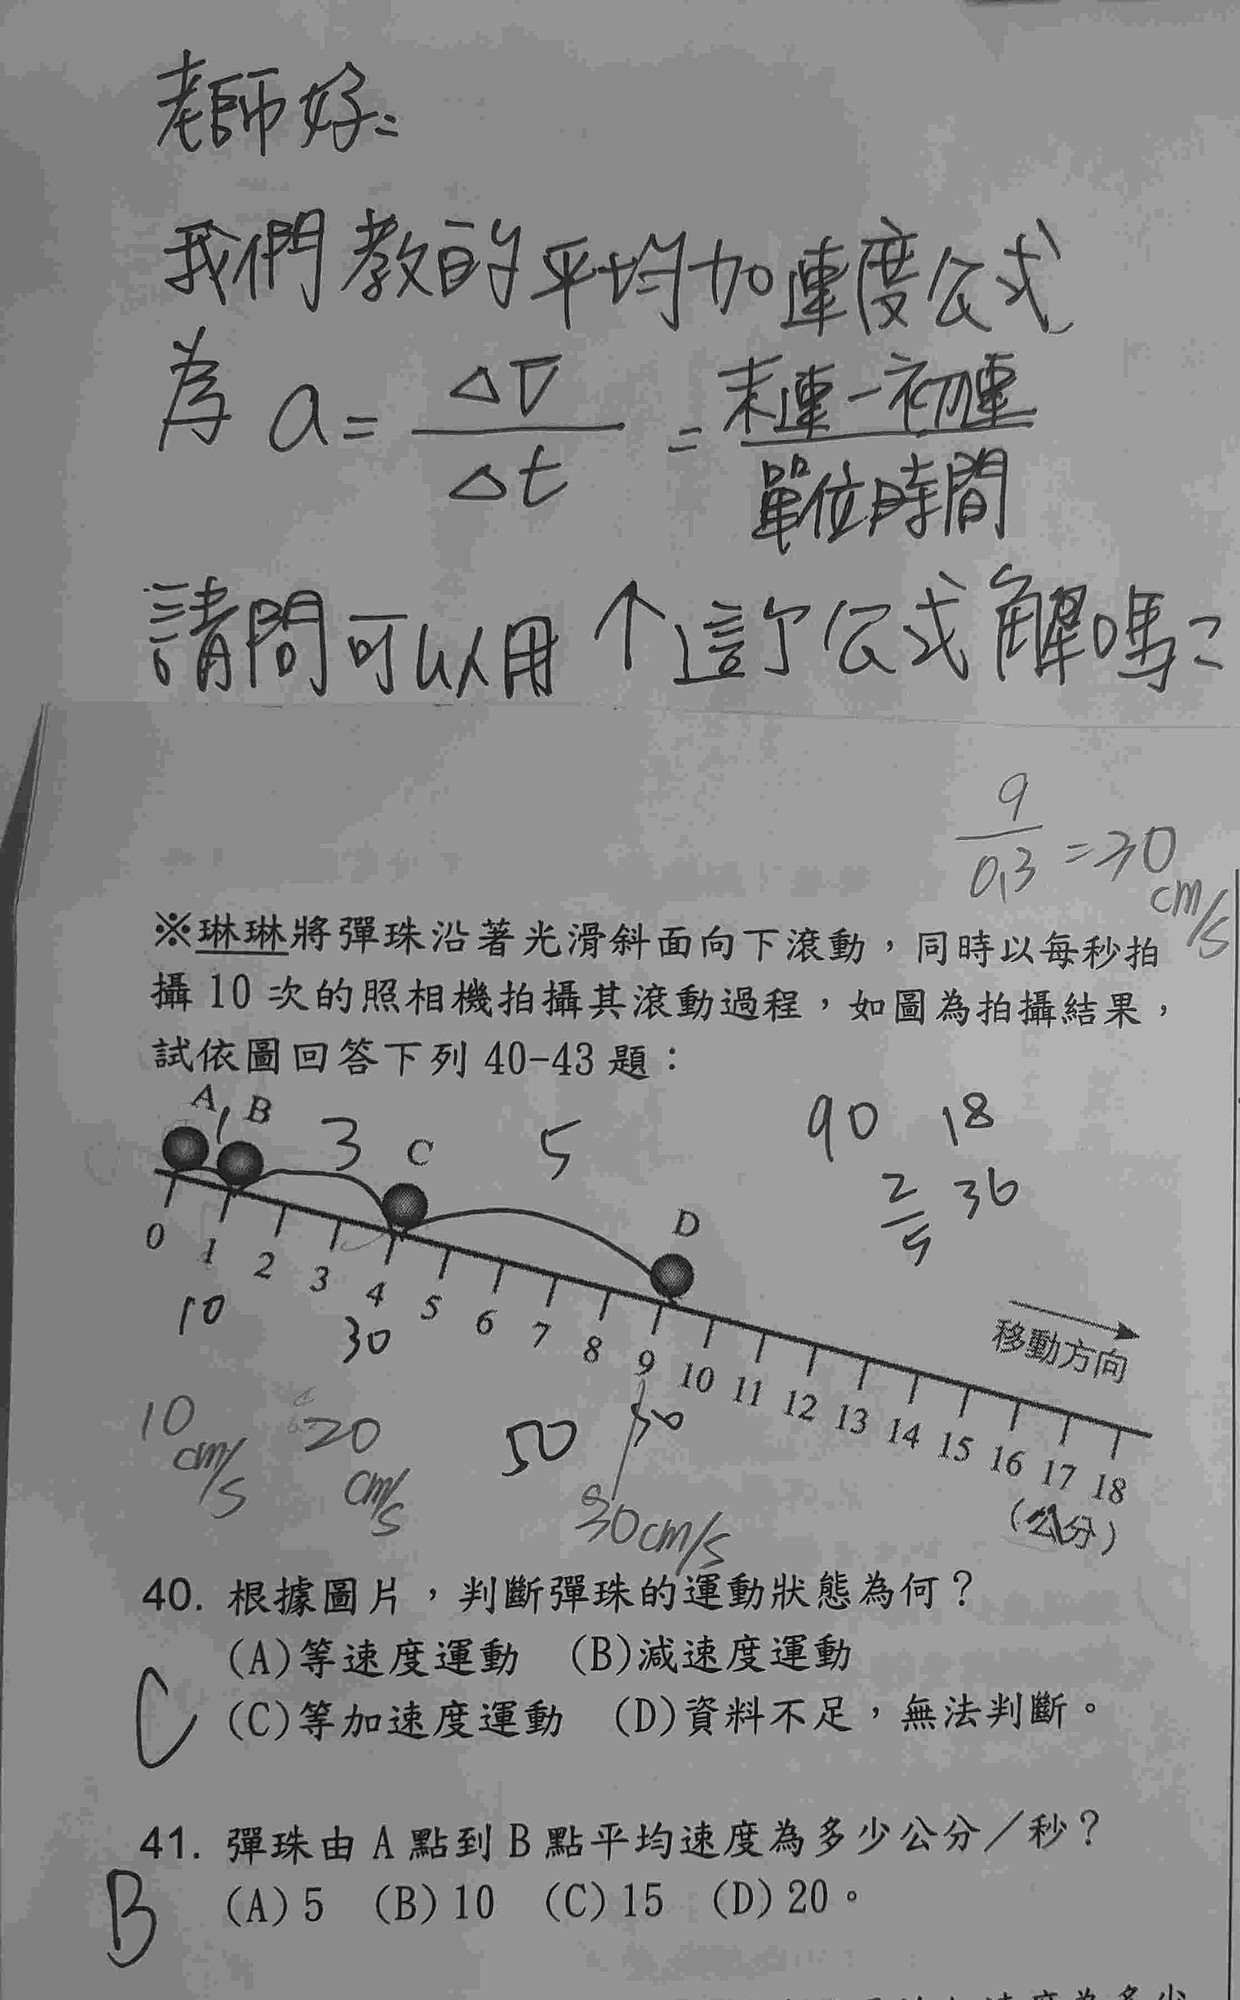 老師好:
我們教的平均加速度公式
為 a = ΔV/Δt = 末速-初速/單位時間
請問可以用↑這個公式解嗎?
9/0.3 = 30 cm/s
※琳琳將彈珠沿著光滑斜面向下滾動，同時以每秒拍
攝 10 次的照相機拍攝其滾動過程，如圖為拍攝結果，
試依圖回答下列 40-43 題：
A 1 B 3 C 5 D
90 18
2/5 36
0 1 2 3 4 5 6 7 8 9 10 11 12 13 14 15 16 17 18
(公分)
移動方向
10 30 50
10 cm/s 20 cm/s 50 30cm/s
40. 根據圖片，判斷彈珠的運動狀態為何？
(A)等速度運動 (B)減速度運動
C
(C)等加速度運動 (D)資料不足，無法判斷。
41. 彈珠由 A 點到 B 點平均速度為多少公分／秒？
B
(A) 5 (B) 10 (C) 15 (D) 20。